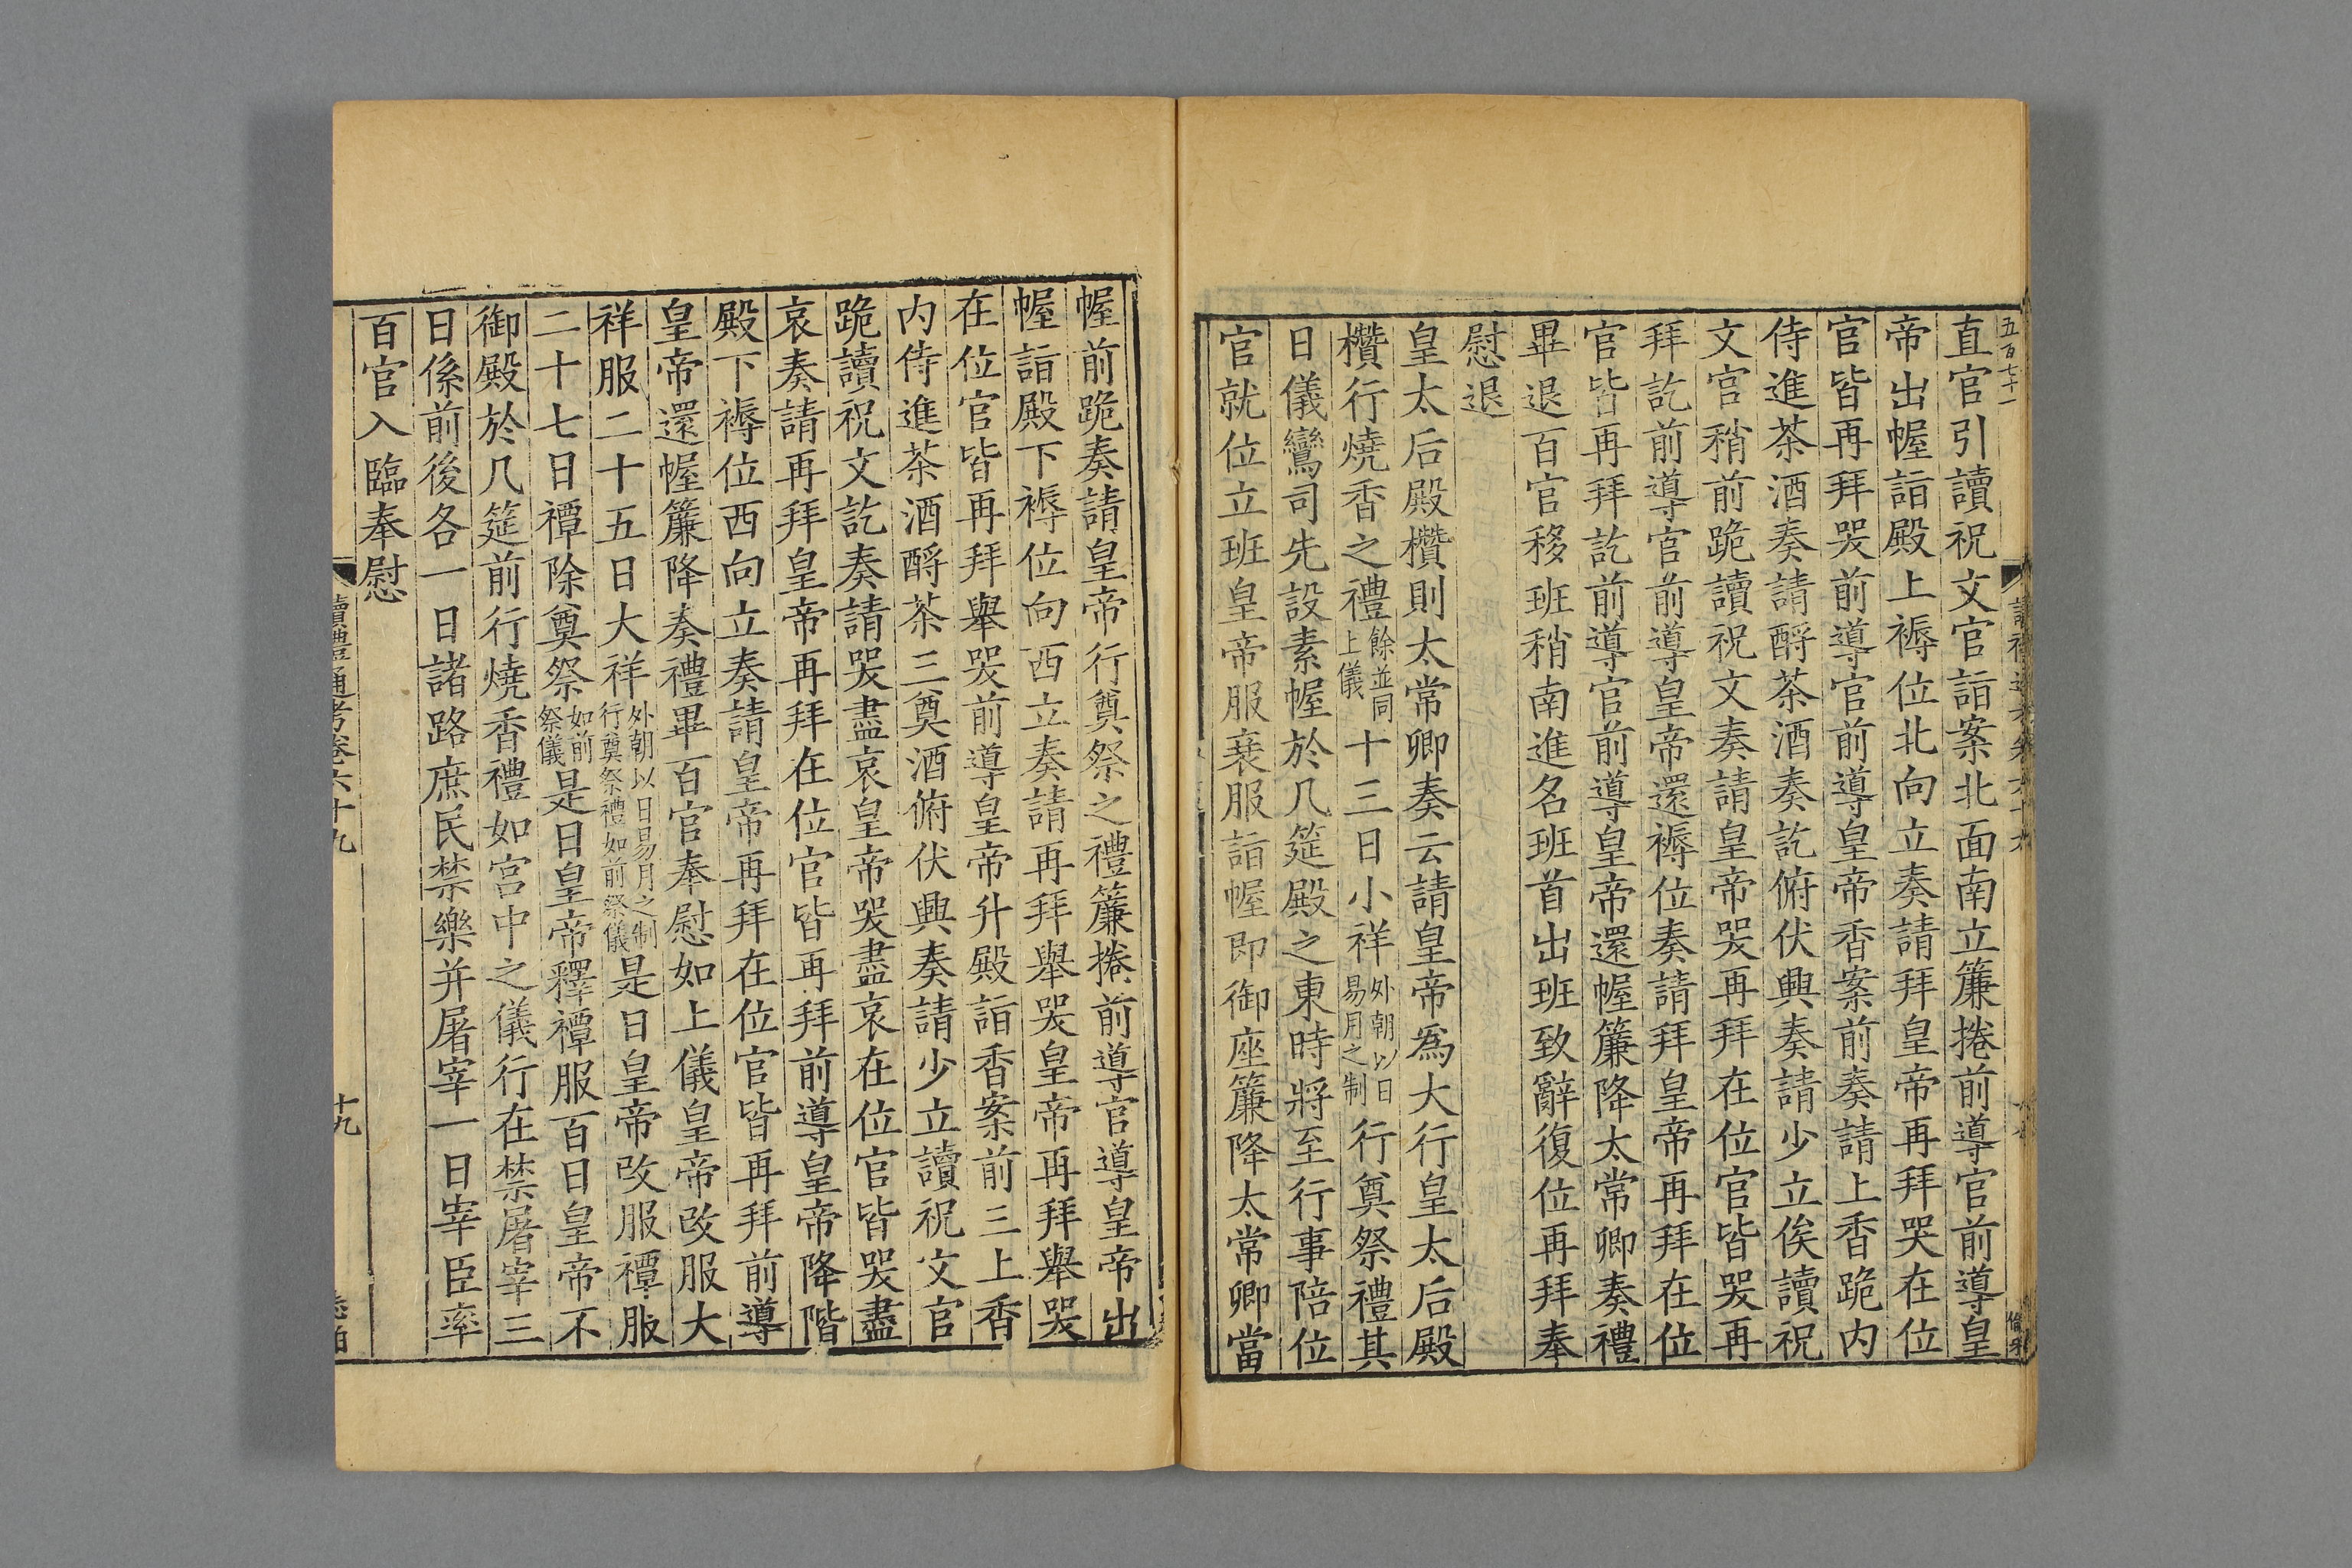 五百七十一
直官引讀祝文官詣案北面南立簾捲前導官前導皇
帝出幄詣殿上褥位北向立奏請拜皇帝再拜哭在位
官皆再拜哭前導官前導皇帝香案前奏請上香跪内
侍進茶酒奏請酹茶酒奏訖俯伏興奏請少立俟讀祝
文官稍前跪讀祝文奏請皇帝哭再拜在位官皆哭再
拜訖前導官前導皇帝還褥位奏請拜皇帝再拜在位
官皆再拜訖前導官前導皇帝還幄簾降太常卿奏禮
畢退百官移班稍南進名班首出班致辭復位再拜奉
慰退
皇太后殿欑則太常卿奏云請皇帝爲大行皇太后殿
欑行燒香之禮餘並同上儀十三日小祥外朝以日易月之制行奠祭禮其
日儀鸞司先設素幄於几筵殿之東時將至行事陪位
官就位立班皇帝服衰服詣幄即御座簾降太常卿當
幄前跪奏請皇帝行奠祭之禮簾捲前導官導皇帝出
幄詣殿下褥位向西立奏請再拜舉哭皇帝再拜舉哭
在位官皆再拜舉哭前導皇帝升殿詣香案前三上香
内侍進茶酒酹茶三奠酒俯伏興奏請少立讀祝文官
跪讀祝文訖奏請哭盡哀皇帝哭盡哀在位官皆哭盡
哀奏請再拜皇帝再拜在位官皆再拜前導皇帝降階
殿下褥位西向立奏請皇帝再拜在位官皆再拜前導
皇帝還幄簾降奏禮畢百官奉慰如上儀皇帝改服大
祥服二十五日大祥外朝以日易月之制行奠祭禮如前祭儀是日皇帝改服禫服
二十七日禫除奠祭如前祭儀是日皇帝釋禫服百日皇帝不
御殿於几筵前行燒香禮如宮中之儀行在禁屠宰三
日係前後各一日諸路庶民禁樂并屠宰一日宰臣率
百官入臨奉慰
讀禮通考卷六十九
十九